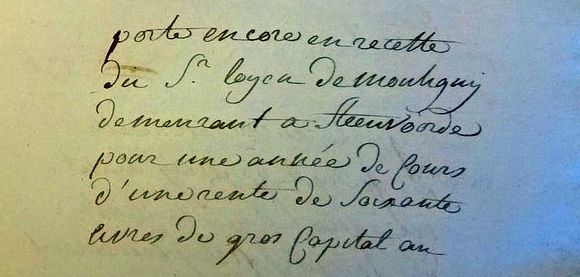 porte encore en recette
du Sr. loyca de montigny
demeurant a Steenvoorde
pour une année de Cours
d'une rente de Soixante
livres de gros Capital au